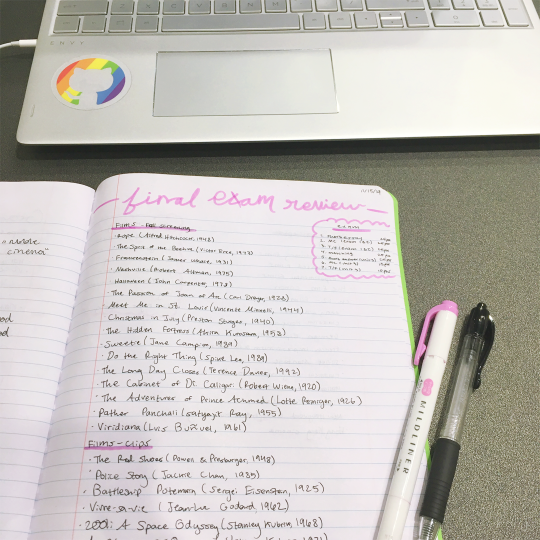 ENVY
"nuvole
cinema"
11/15/18
final exam review
Films - full screening
· Rope (Alfred Hitchcock, 1948)
· The Spirit of the Beehive (Victor Erice, 1973)
· Frankenstein (James Whale, 1931)
· Nashville (Robert Altman, 1975)
· Halloween (John Carpenter, 1978)
· The Passion of Joan of Arc (Carl Dreyer, 1928)
· Meet Me in St. Louis (Vincente Minnelli, 1944)
· Christmas in July (Preston Sturges, 1940)
· The Hidden Fortress (Akira Kurosawa, 1958)
· Sweetie (Jane Campion, 1989)
· Do the Right Thing (Spike Lee, 1989)
· The Long Day Closes (Terence Davies, 1992)
· The Cabinet of Dr. Caligari (Robert Wiene, 1920)
· The Adventures of Prince Achmed (Lotte Reiniger, 1926)
· Pather Panchali (Satyajit Ray, 1955)
· Viridiana (Luis Buñuel, 1961)
Films - clips
· The Red Shoes (Powell & Pressburger, 1948)
· Police Story (Jackie Chan, 1985)
· Battleship Potemkin (Sergei Eisenstein, 1925)
· Vivre sa vie (Jean-Luc Godard, 1962)
· 2001: A Space Odyssey (Stanley Kubrick, 1968)
MILDLINER